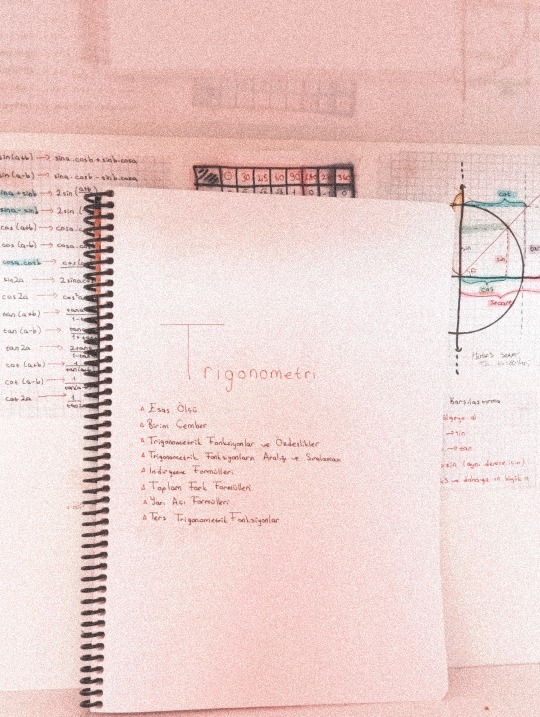 sin(a+b) → sina.cosb + sinb.cosa
sin(a-b) → sina.cosb - sinb.cosa
sina + sinb → 2sin(a+b
sina - sinb → 2sin
cos(a+b) → cosa.co
cos(a-b) → cosa.c
cosa.cosb → cos(a
sin2a → 2sina.co
cos2a → cos²a
tan(a+b) → tana+
1-ta
tan(a-b) → tana
1+ta
tan2a → 2tana
1-tan
cot(a+b) → 1
tan(a+
cot(a-b) → 1
tan(a-
cot2a → 1
tan2a
0 30 45 60 90 180 270 360
Trigonometri
Esas Ölçü
Birim Çember
Trigonometrik Fonksiyonlar ve Özdeşlikler
Trigonometrik Fonksiyonların Aralığı ve Sıralaması
İndirgeme Formülleri
Toplam Fark Formülleri
Yarı Açı Formülleri
Ters Trigonometrik Fonksiyonlar
cot
sin
sin
tan
cos
secant
Karşılaştırma
→ sin
→ tan